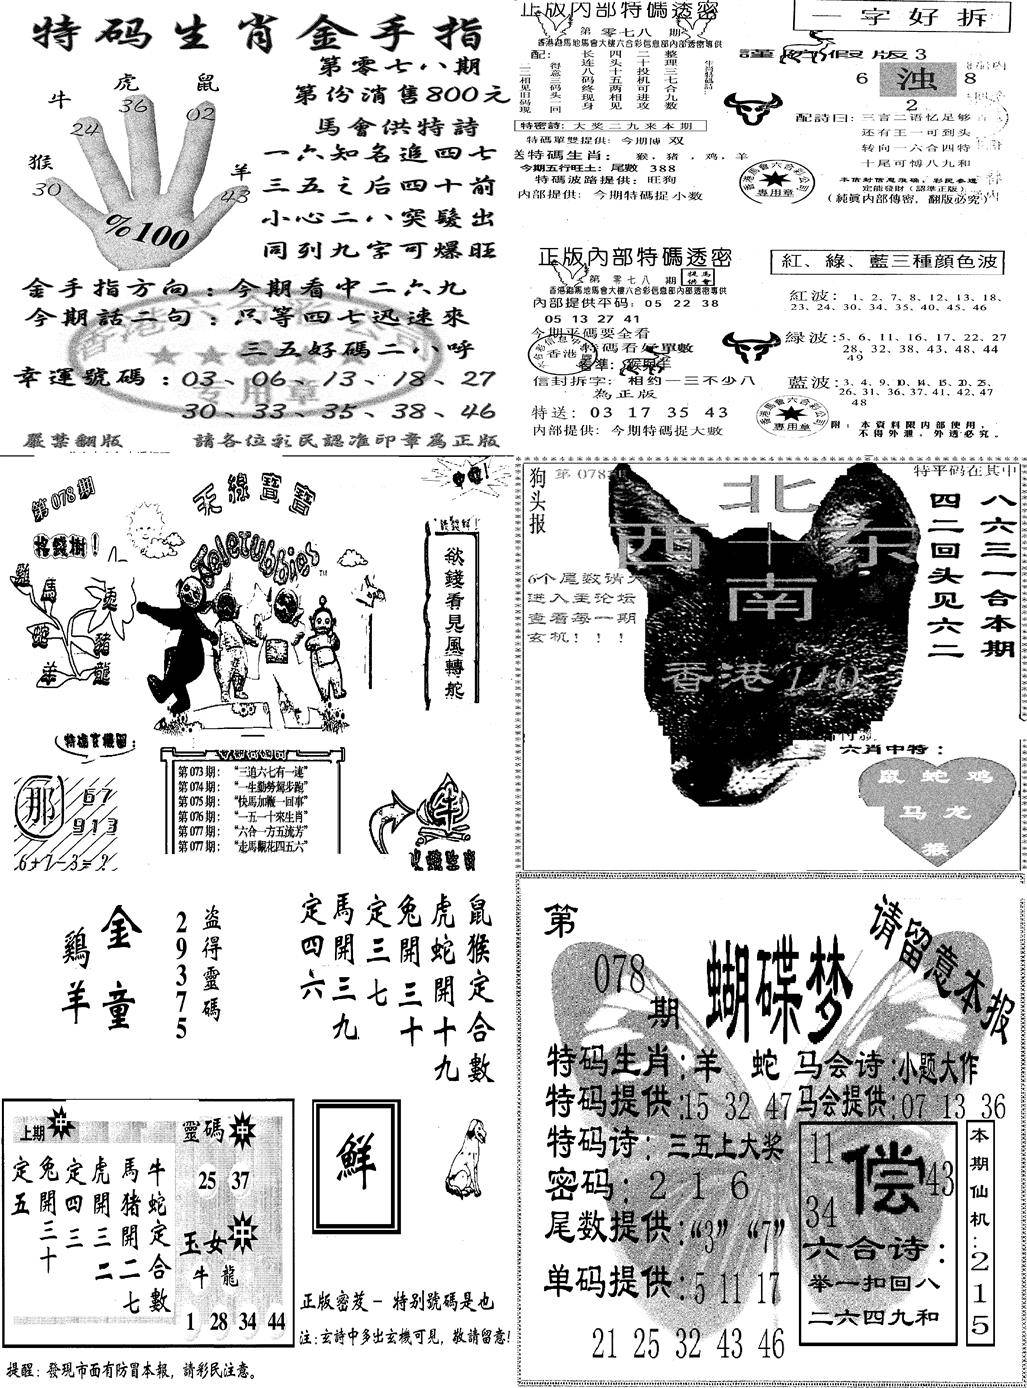 特码生肖金手指
第零七八期
第份消售800元
馬會供特詩
一六知名追四七
三五之后四十前
小心二八突髮出
同列九字可爆旺
牛
虎
鼠
猴
羊
24
36
02
30
43
%100
金手指方向：今期看中二六九
今期話二句：只等四七迅速來
三五好碼二八呼
幸運號碼：03、06、13、18、27
30、33、35、38、46
专用章
嚴禁翻版
請各位彩民認准印章為正版
正版内部特碼透密
第 零七八 期
香港跑馬地馬會大樓六合彩信息部內部透密專供
配：
整理三七合九数
二十投机可进攻
四头十五两相见
长连八码终现身
得意三码头一回
特密詩：大奖二九来本期
特碼單雙提供：今期博 双
送特碼生肖： 猴，猪，鸡，羊
今期五行旺土：尾數 388
特碼波路提供：旺狗
内部提供：今期特碼捉小数
一字好拆
謹防假版3
6
浊
8
2
配詩曰：三言二语忆足够
还有王一可到头
转向一六合四特
十尾可博八九和
專用章
定能發財（認準正版）
（純眞内部傳密，翻版必究）
正版内部特碼透密
第 零七八 期
提馬
供會
香港跑馬地馬會大樓六合彩信息部內部透密專供
内部提供平码：05 22 38
05 13 27 41
今期平碼要全看
特碼看好單數
香港
看準：猴與羊
信封拆字：相约一三不少八
為正版
特送：03 17 35 43
内部提供：今期特碼捉大數
紅、綠、藍三種顔色波
紅波：1、2、7、8、12、13、18、
23、24、30、34、35、40、45、46
绿波：5、6、11、16、17、22、27
28、32、38、43、48、44
49
藍波：3、4、9、10、14、15、20、25、
26、31、36、37、41、42、47
48
專用章
附：本資料限内部使用，
不得外泄，外透必究。
第 078 期
天線寶寶
搖錢樹！
Teletubbies
TM
雞
馬
猪
羊
龍
欲錢看見風轉舵
特碼玄機圖：
那
67
913
6+7-3=?
第073期： “三追六七有一連”
第074期： “一生勤勞駕步跑”
第075期： “快馬加鞭一回事”
第076期： “一五一十來生肖”
第077期： “六合一方五流芳”
第077期： “走馬觀花四五六”
牛
狗头报
第 078 期
特平码在其中
北
西 十 东
南
八六三一合本期
四二回头见六二
6个尾数请
进入主论坛
查看每一期
玄机！！！
香港 110
六肖中特：
鼠 蛇 鸡
马 龙
猴
金童
鷄羊
盗得靈碼
29375
鼠猴定合數
虎蛇開十九
兔開三十
定三七
馬開三九
定四六
上期
中
牛蛇定合數
馬猪開二七
虎開三二
定四三
兔開三十
定五
靈碼
中
25 37
玉女
中
牛 龍
1 28 34 44
鮮
正版密笈－特别號碼是也
注：玄詩中多出玄機可見，敬請留意！
提醒：發現市面有防冒本報，請彩民注意。
第
078
期
蝴蝶梦
请留意本报
特码生肖：羊 蛇
特码提供：15 32 47
特码诗：三五上大奖
密码：2 1 6
尾数提供：“3” “7”
单码提供：5 11 17
21 25 32 43 46
马会诗：小题大作
马会提供：07 13 36
11
偿
43
34
六合诗：
举一扣回八
二六四九和
本期仙机：215